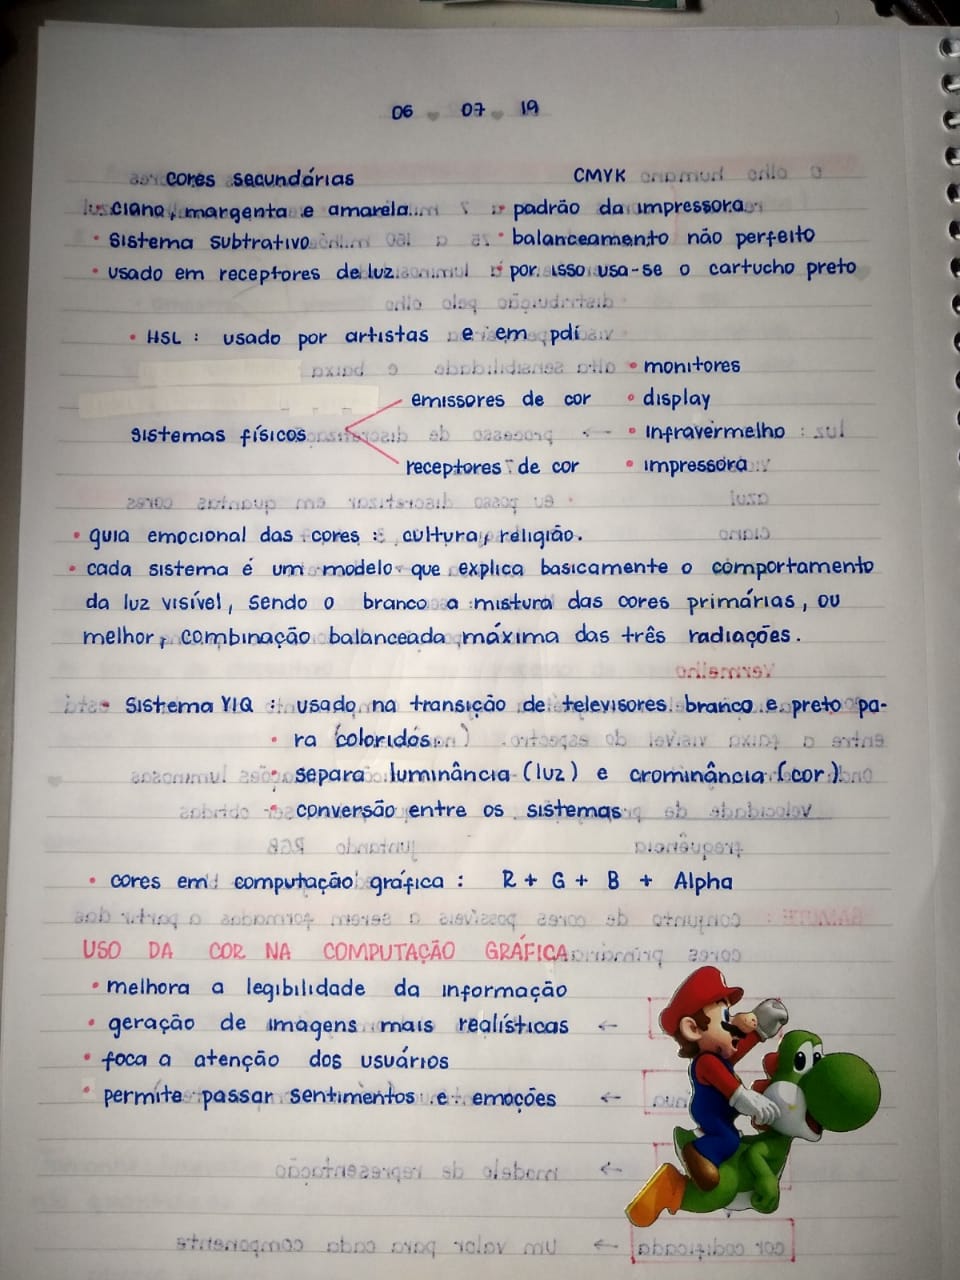 06 07 19
cores secundárias
ciano, margenta e amarela
• sistema subtrativo
• usado em receptores de luz
CMYK
• padrão da impressora
• balanceamento não perfeito
• por isso usa-se o cartucho preto
• HSL : usado por artistas e em pdi
sistemas físicos
emissores de cor
receptores de cor
• monitores
• display
• infravermelho
• impressora
• guia emocional das cores : cultura, religião.
• cada sistema é um modelo que explica basicamente o comportamento
da luz visível, sendo o branco a mistura das cores primárias, ou
melhor, combinação balanceada máxima das três radiações.
• Sistema YIQ : usado na transição de televisores branco e preto pa-
ra coloridos.
• separa luminância (luz) e crominância (cor)
• conversão entre os sistemas
• cores em computação gráfica : R + G + B + Alpha
USO DA COR NA COMPUTAÇÃO GRÁFICA
• melhora a legibilidade da informação
• geração de imagens mais realísticas
• foca a atenção dos usuários
• permite passar sentimentos e emoções